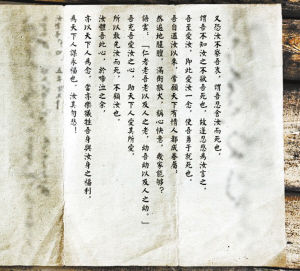 又恐汝不察吾衷，謂吾忍舍汝而死，
謂吾不知汝之不欲吾死也，故遂忍悲為汝言之。
吾至愛汝，即此愛汝一念，使吾勇于就死也。
吾自遇汝以來，常願天下有情人都成眷屬，
然遍地腥雲，滿街狼犬，稱心快意，幾家能夠？
語云：「仁者老吾老以及人之老，幼吾幼以及人之幼。」
吾充吾愛汝之心，助天下人愛其所愛，
所以敢先汝而死，不顧汝也。
汝體吾此心，於啼泣之餘，
亦以天下人為念，當亦樂犧牲吾身與汝身之福利，
為天下人謀永福也。汝其勿悲！